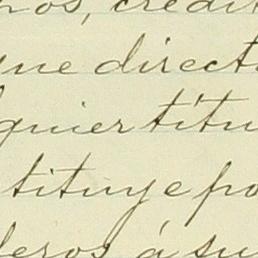 nos, credit
que direct
quier titu
tituye po
deros á su